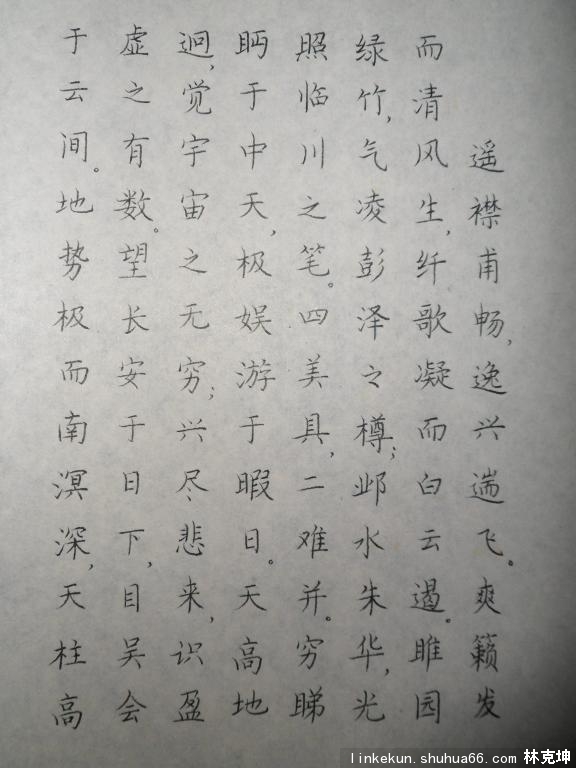 遥襟甫畅，逸兴遄飞。爽籁发
而清风生，纤歌凝而白云遏。睢园
绿竹，气凌彭泽之樽；邺水朱华，光
照临川之笔。四美具，二难并。穷睇
眄于中天，极娱游于暇日。天高地
迥，觉宇宙之无穷；兴尽悲来，识盈
虚之有数。望长安于日下，目吴会
于云间。地势极而南溟深，天柱高
linkekun.shuhua66.com 林克坤